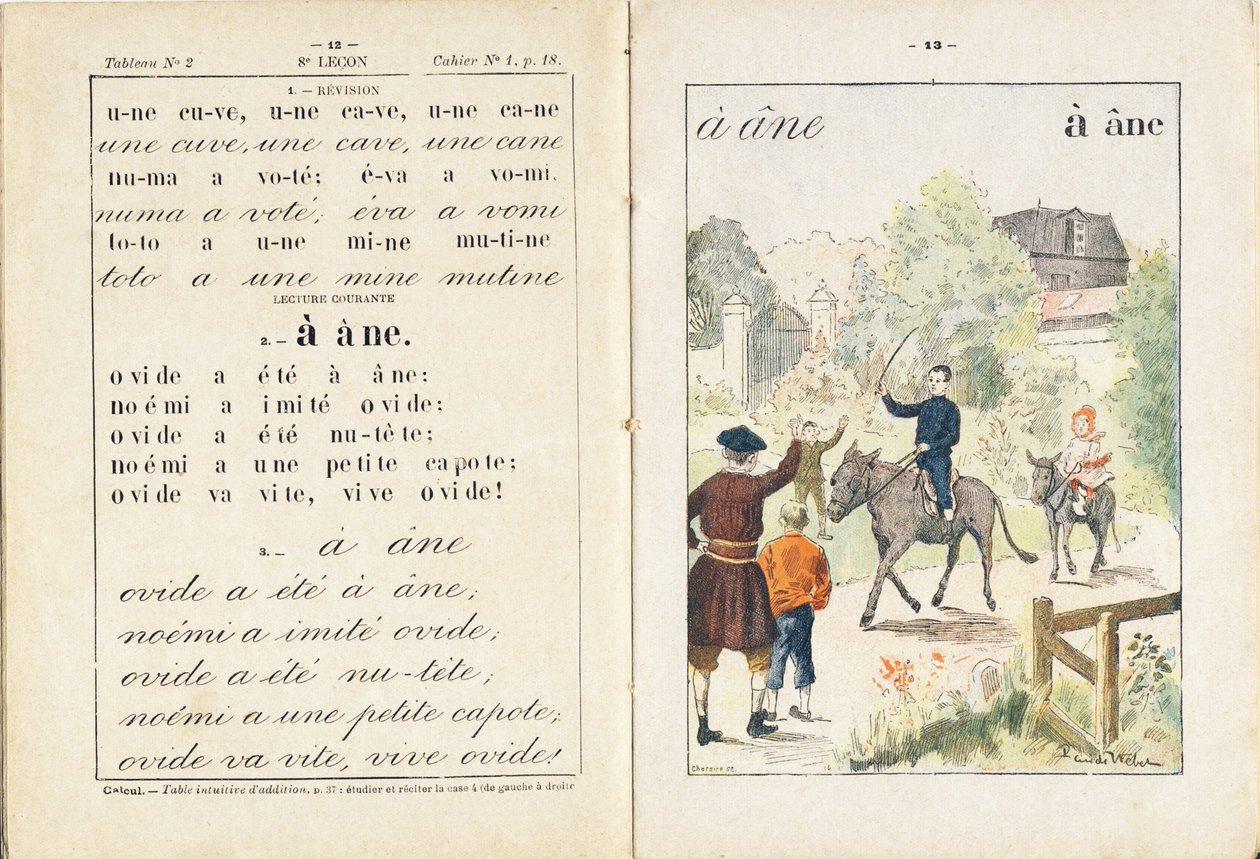 — 12 —
Tableau Nº 2 8ᵉ LEÇON Cahier Nº 1, p. 18.
1. — RÉVISION
u-ne cu-ve, u-ne ca-ve, u-ne ca-ne
une cuve, une cave, une cane
nu-ma a vo-té; é-va a vo-mi.
numa a voté; éva a vomi
to-to a u-ne mi-ne mu-ti-ne
toto a une mine mutine
LECTURE COURANTE
2. — à âne.
o vi de a é té à â ne;
no é mi a i mi té o vi de;
o vi de a é té nu-tê te;
no é mi a u ne pe ti te ca po te;
o vi de va vi te, vi ve o vi de!
3. — à âne
ovide a été à âne;
noémi a imité ovide;
ovide a été nu-tête;
noémi a une petite capote;
ovide va vite, vive ovide!
Calcul. — Table intuitive d'addition, p. 37 : étudier et réciter la case 4 (de gauche à droite
— 13 —
à âne à âne